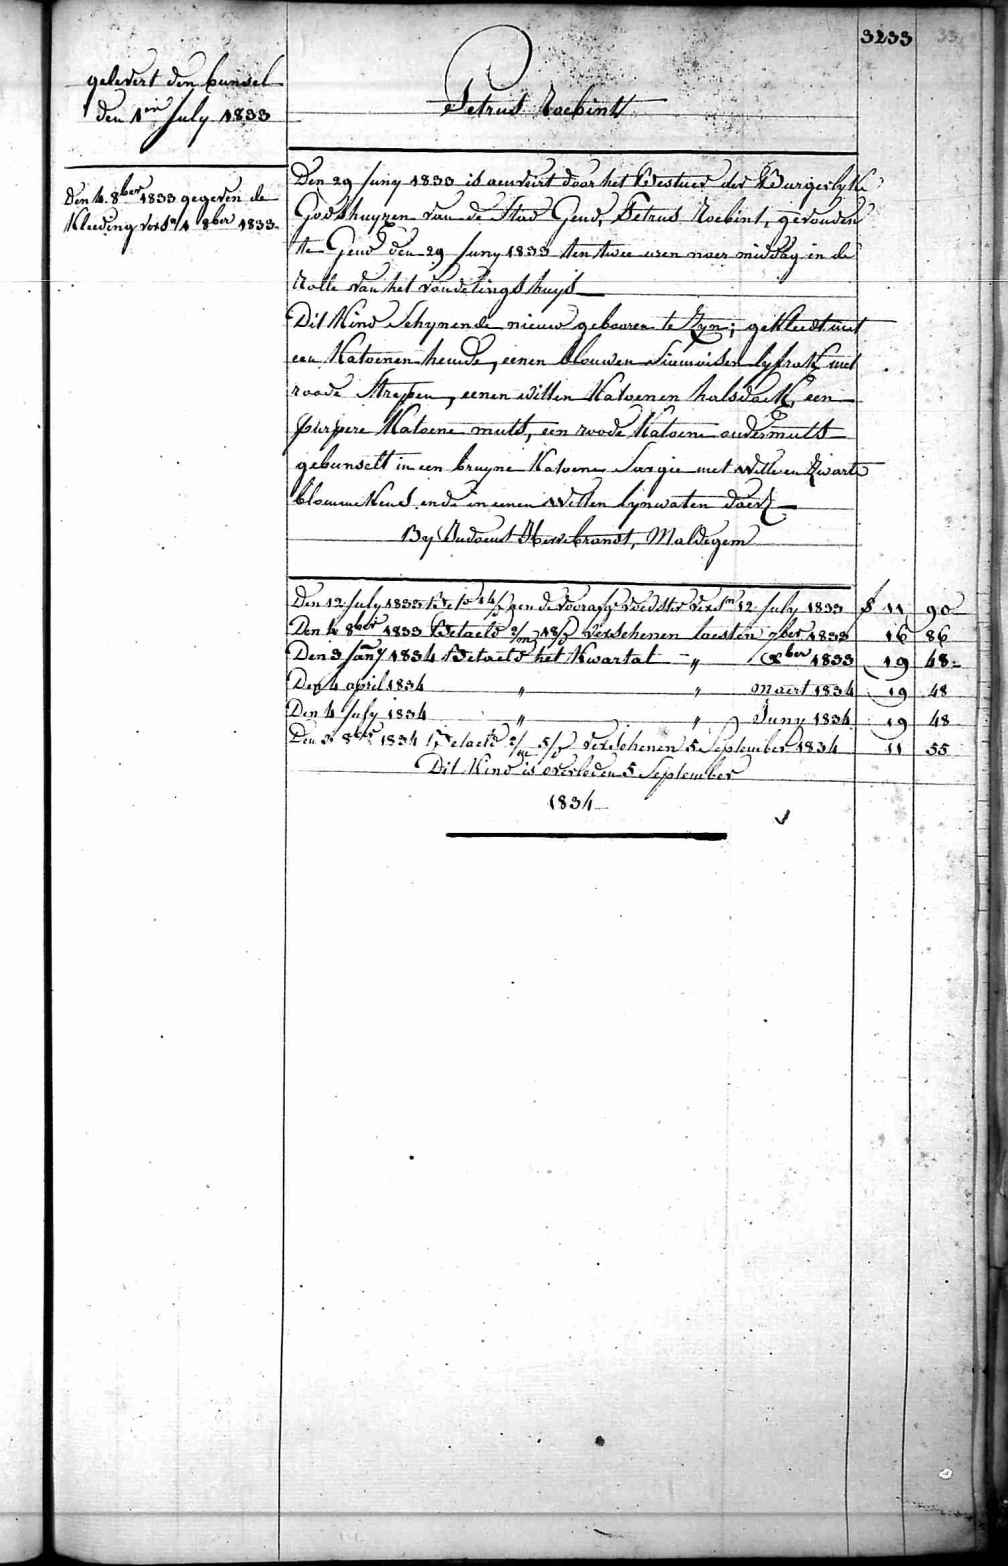 3233
33
gelevert den bunsel
den 1en July 1833
Petrus Roebint
Den 4. 8ber 1833 gegeven de
Kleeding versn 1 8ber 1833
Den 29 Juny 1833 is aenveirt door het Bestuer der Burgerlyke
Godshuyzen van de Stad Gend, Petrus Roebint, gevonden
te Gend den 29 Juny 1833 ten twee uren naer middag in de
Rolle van het vondelingshuys
Dit Kind Schynende nieuw gebooren te Zyn; gekleedt met
een Katoenen hemde, eenen blouwen Siamoisen lyfrok met
roode Strepen, eenen witten Katoenen halsdoek, een
purpere Katoene muts, een roode Katoene ondermuts
gebunselt in een bruyne Katoene Sargie met witte en Zwarte
blommekens ende in eenen Witten lynwaten doek
By Hersebrandt, Maldegem
Den 12 July 1833 aen de voorafge voedster versn 12 July 1833 f 11 90
Den 4 8ber 1833 Betaeld 2/m 18/d verschenen laesten 7ber 1833 16 86
Den 3 Jany 1834 Betaeld het Kwartal - " Xber 1833 19 48
Den 4 april 1834 " " maert 1834 19 48
Den 4 July 1834 " " Juny 1834 19 48
Den 3 8ber 1834 Betaeld 2/m 5/d verschenen 5 September 1834 11 55
Dit Kind is overleden 5 September
1834